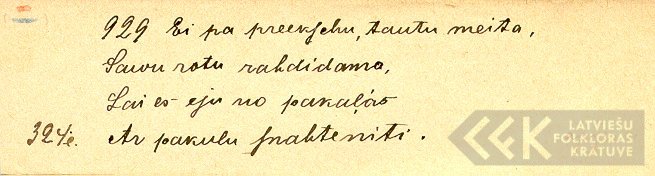 929 Ei pa preekschu, tautu meita,
Sawu rotu rahdidama,
Lai es eju no pakaļas
324e. Ar pakulu snahteniti.
LATVIEŠU
FOLKLORAS
KRĀTUVE